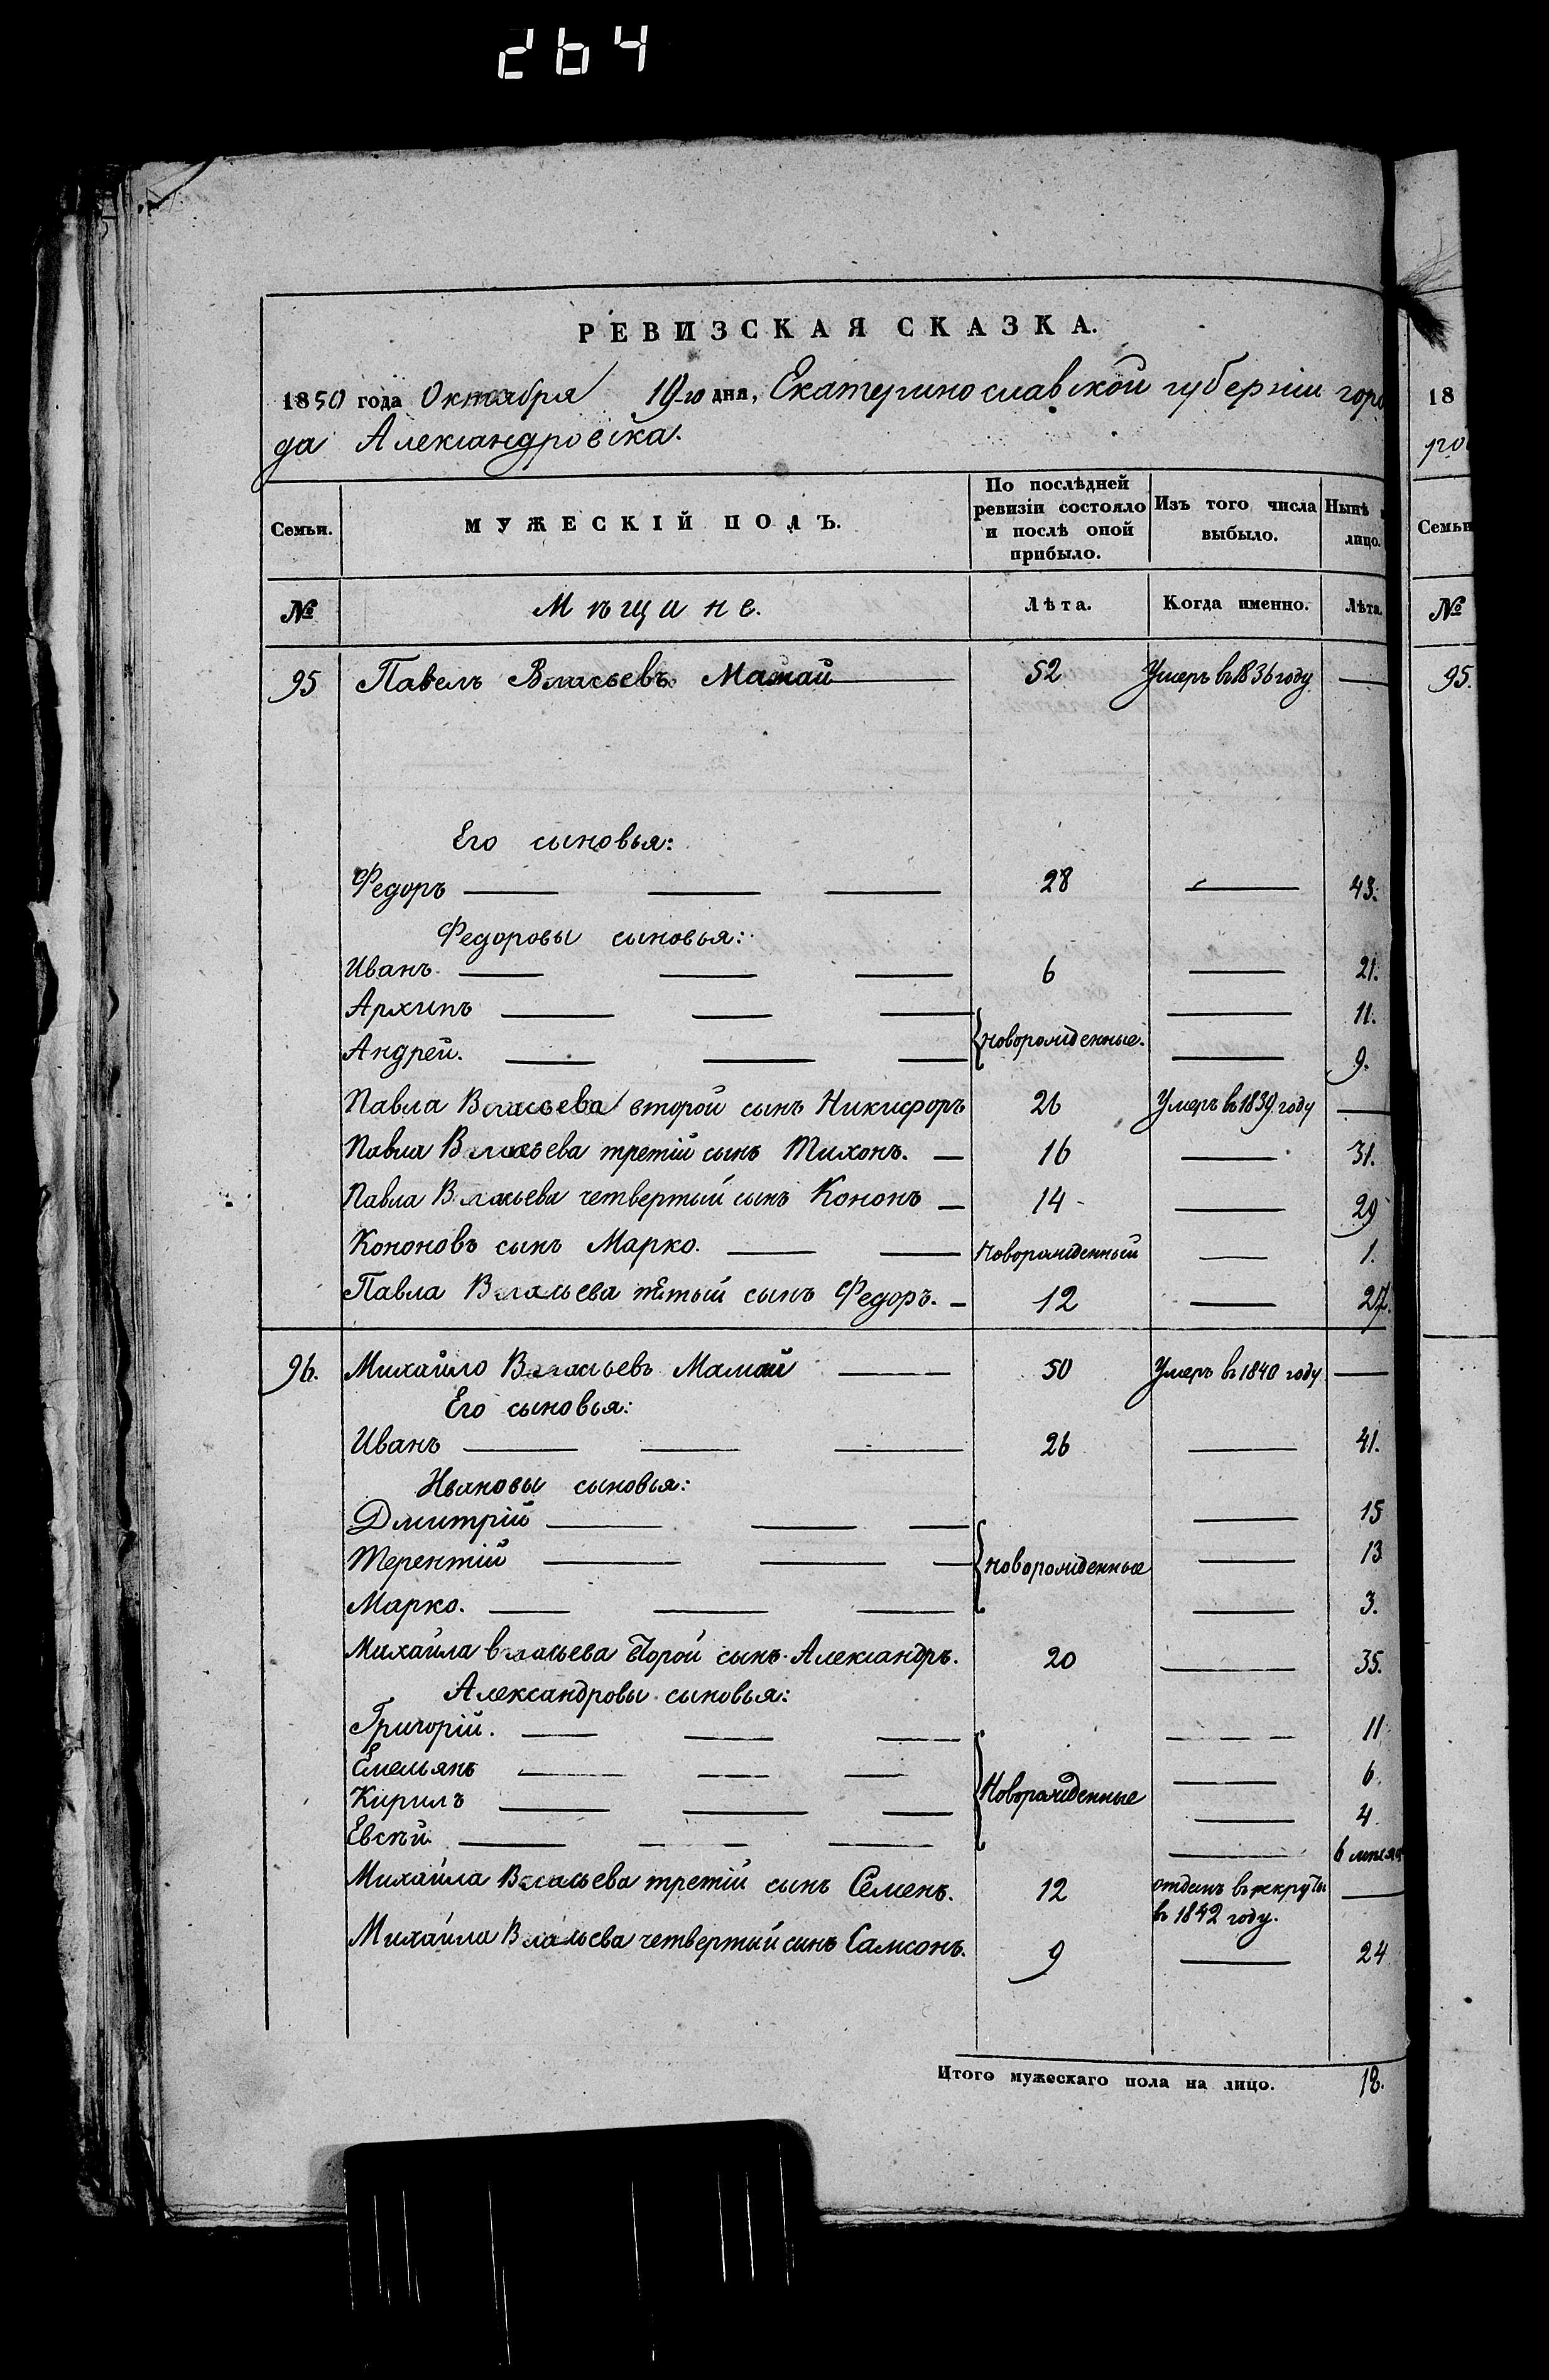 264
РЕВИЗСКАЯ СКАЗКА.
1850 года Октября 19-го дня, Екатеринославской губерніи горо
да Александровска.
Семьи.
МУЖЕСКІЙ ПОЛЪ.
По послѣдней ревизіи состояло и послѣ оной прибыло.
Изъ того числа выбыло.
Нынѣ лицо.
№ Мѣщане. Лѣта. Когда именно. Лѣта.
95 Павелъ Власьевъ Мамай 52 Умеръ въ 1836 году
Его сыновья:
Федоръ 28 43.
Федоровы сыновья:
Иванъ 6 21.
Архипъ 11.
новорожденные.
Андрей. 9.
Павла Власьева второй сынъ Никифоръ 26 Умеръ въ 1839 году
Павла Власьева третій сынъ Тихонъ. 16 31.
Павла Власьева четвертый сынъ Кононъ 14 29
Кононовъ сынъ Марко. Новорожденный 1.
Павла Власьева пятый сынъ Федоръ. 12 27.
96. Михайло Власьевъ Мамай 50 Умеръ въ 1840 году
Его сыновья:
Иванъ 26 41.
Ивановы сыновья:
Дмитрій 15
Терентій новорожденные 13
Марко. 3.
Михайла Власьева второй сынъ Александръ. 20 35.
Александровы сыновья:
Григорій. 11
Емельянъ 6.
Новорожденные
Кирилъ 4.
Евсѣй 6 мѣсяц
Михайла Власьева третій сынъ Семенъ. 12 отданъ въ рекруты
въ 1842 году.
Михайла Власьева четвертый сынъ Самсонъ. 9 24
Итого мужескаго пола на лицо. 18.
18
Семьи
№
95.